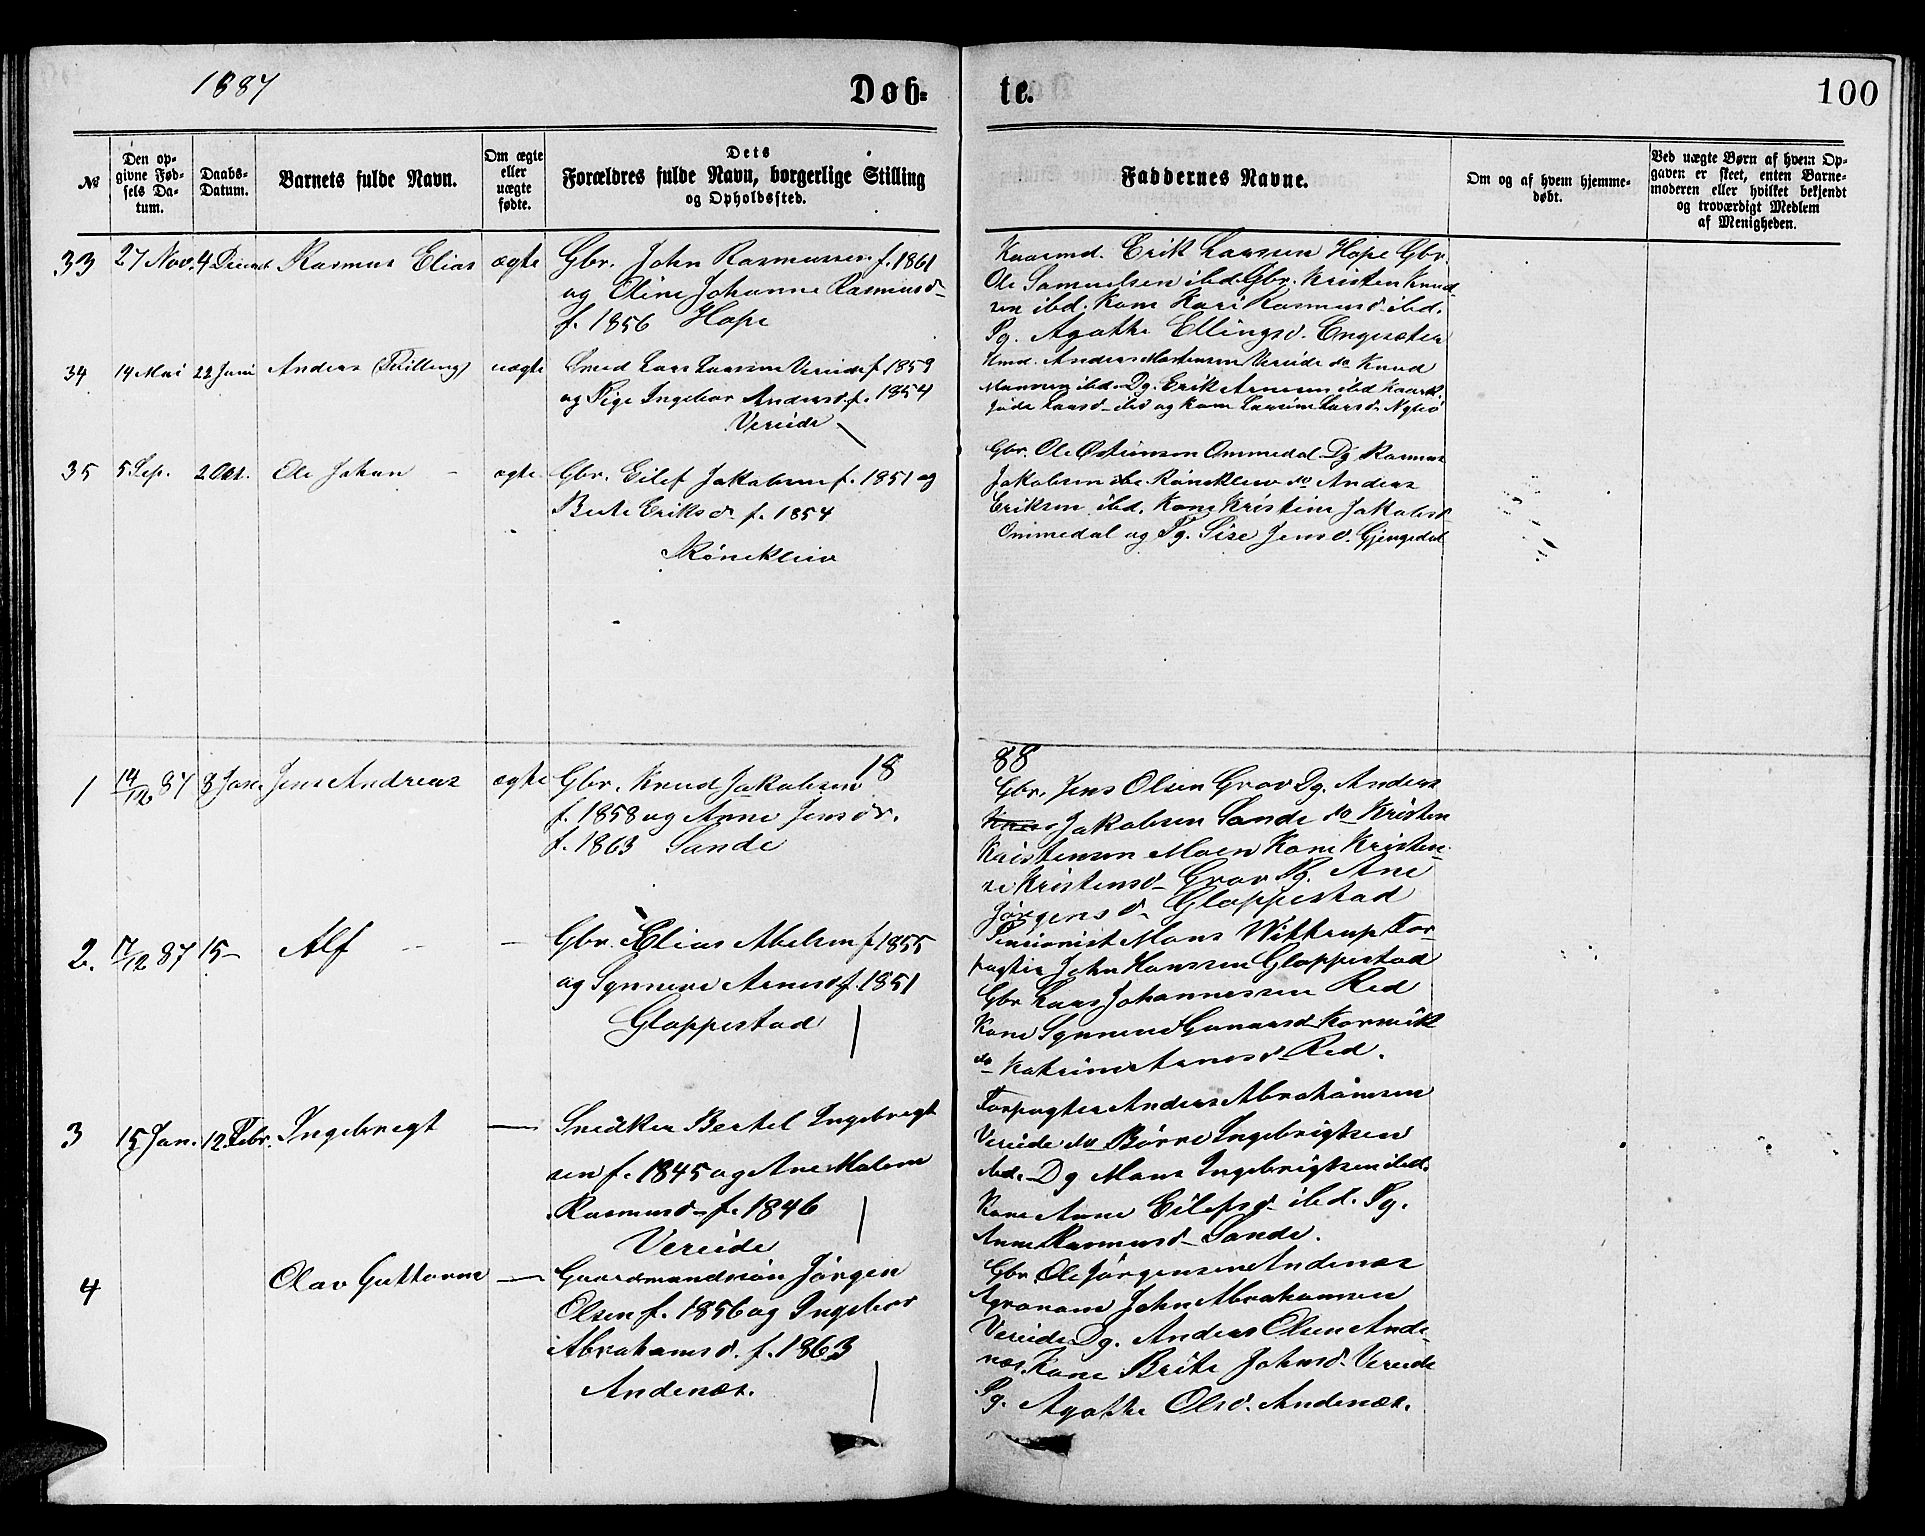 1887
Døb-
te.
100
№
Den op-
givne Fød-
sels Da-
tum.
Daabs-
Datum.
Barnets fulde Navn.
Om ægte
eller
uægte
fødte.
Dets
Forældres fulde Navn, borgerlige Stilling
og Opholdssted.
Faddernes Navne.
Om og af hvem hjemme-
døbt.
Ved uægte Børn af hvem Op-
gaven er skeet, enten Barne-
moderen eller hvilket bekjendt
og troværdigt Medlem
af Menigheden.
33
27 Nov.
4 Decmb
Rasmus Elias
ægte
Gbr. John Rasmussen f. 1861
og Oline Johanne Rasmusd-
f. 1856 Hope
Kaarmd. Erik Larsen Hope Gbr.
Ole Samuelsen ibd. Gbr. Kristen Knud-
sen ibd. Kone Kari Rasmusd- ibd.
Pg. Agathe Ellingsd. Engesæter
34
14 Mai
22 Juni
Anders (Tvilling)
uægte
Smed Lars Larsen Vereide f 1859
og Pige Ingebor Andersd. f. 1854
Vereide
Hmd. Anders Mortensen Vereide do Knud
Monsen ibd. Dg. Erik Arnesen ibd Kaark.
Larsd- ibd og Kone Larsd-
35
5 Sep.
2 Okt.
Ole Johan
ægte
Gbr. Eilef Jakobsen f. 1851 og
Berte Eriksd- f. 1854
Rønekleiv
Gbr. Ole Østensen Ommedal Dg Rasmus
Jakobsen Rønekleiv do Anders
Eriksen ibd. Kone Kristine Jakobsd-
Ommedal og Pg. Sise Jensd. Gjengedal
18
88
1
14/12 87
8 Jan.
Jens Andreas
ægte
Gbr. Knud Jakobsen
f. 1858 og Anne Jensd-.
f. 1863 Sande
Gbr. Jens Olsen Grov Dg. Anders
Jakobsen Sande do Kristen
Kristensen Moen Kone Kristen-
se Kristensd- Grov Pg. Ane
Jørgensd- Gloppestad
2.
17/12 87
15 -
Alf
-
Gbr. Elias Abelsen f 1855
og Synneve Arnesd f. 1851
Gloppestad
Pensionist Mons Wittrup For-
pagter John Hanssen Gloppestad
Gbr Lars Johannessen Red
Kone Synneve Gunarsd Karsvik
do Katrine Arnesd- Red.
3
15 Jan.
12 Febr.
Ingebregt
-
Snedker Bertel Ingebregt
sen f. 1845 og Ane Malene
Rasmusd- f. 1846
Vereide
Forpagter Anders Abrahamsen
Vereide do Børre Ingebrigtsen
ibd. Dg Mons Ingebrigtsen ibd.
Kone Anne Eilefsd- ibd. Pg.
Anne Rasmusd- Sande.
4
Olav Guttorm
-
Gaardmandssøn Jørgen
Olsen f. 1856 og Ingebor
Abrahamsd. f. 1863
Andenæs.
Gbr. Ole Jørgensen Andenæs
Agronom John Abrahamsen
Vereide Dg. Anders Olsen Ande-
næs. Kone Brite Johnsd- Vereide
Pg. Agathe Olsd. Andenæs.